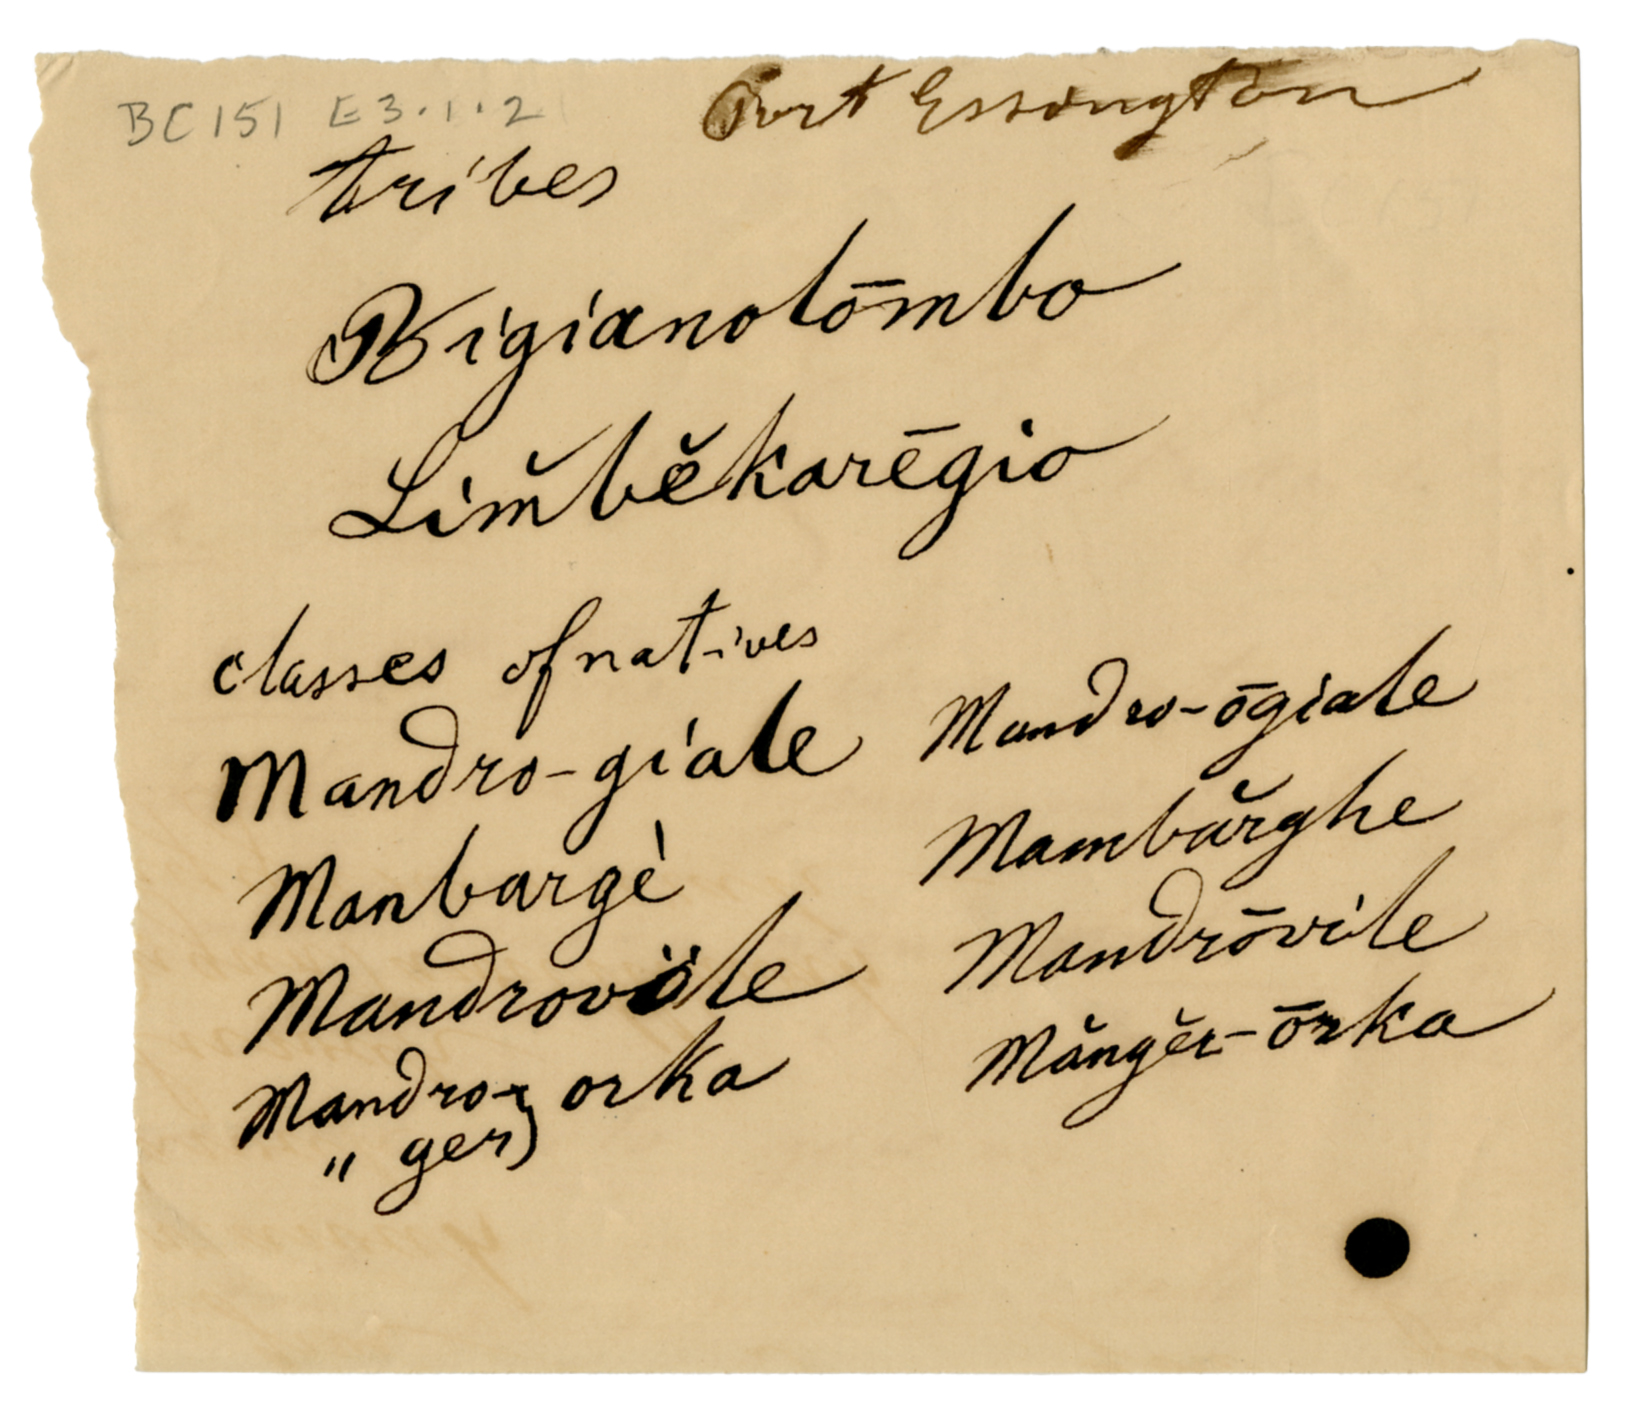 BC151 E3.1.2
Port Essington
tribes
Bigianolōmbo
Lim̆bĕkarēgio
classes of natives
Mandro-giale
Manbargè
Mandrovile
Mandro- } orka
" ger
Mandro-ōgiale
Mambărghe
Mandrōvile
Măngĕr-ōrka